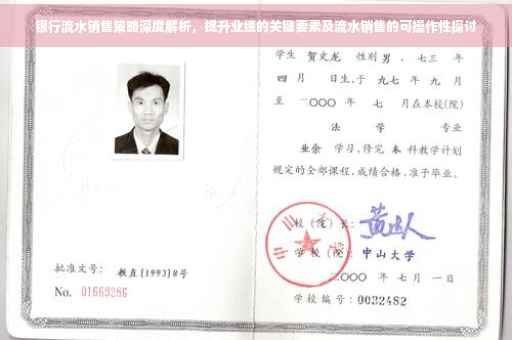 银行流水销售策略深度解析，提升业绩的关键要素及流水销售的可操作性探讨
学生 贺文龙 性别 男，七三 年
四 月 日生，于 九七 年 九 月
至 二〇〇〇 年 七 月在本校(院)
法 学 专业
业余 学习，修完 本 科教学计划
规定的全部课程，成绩合格，准予毕业。
校（院）长：
学 校（院）：中山大学
二〇〇〇 年 七 月 一 日
学校编号：0032482
批准文号： 教直[1993]8号
No. 01669286